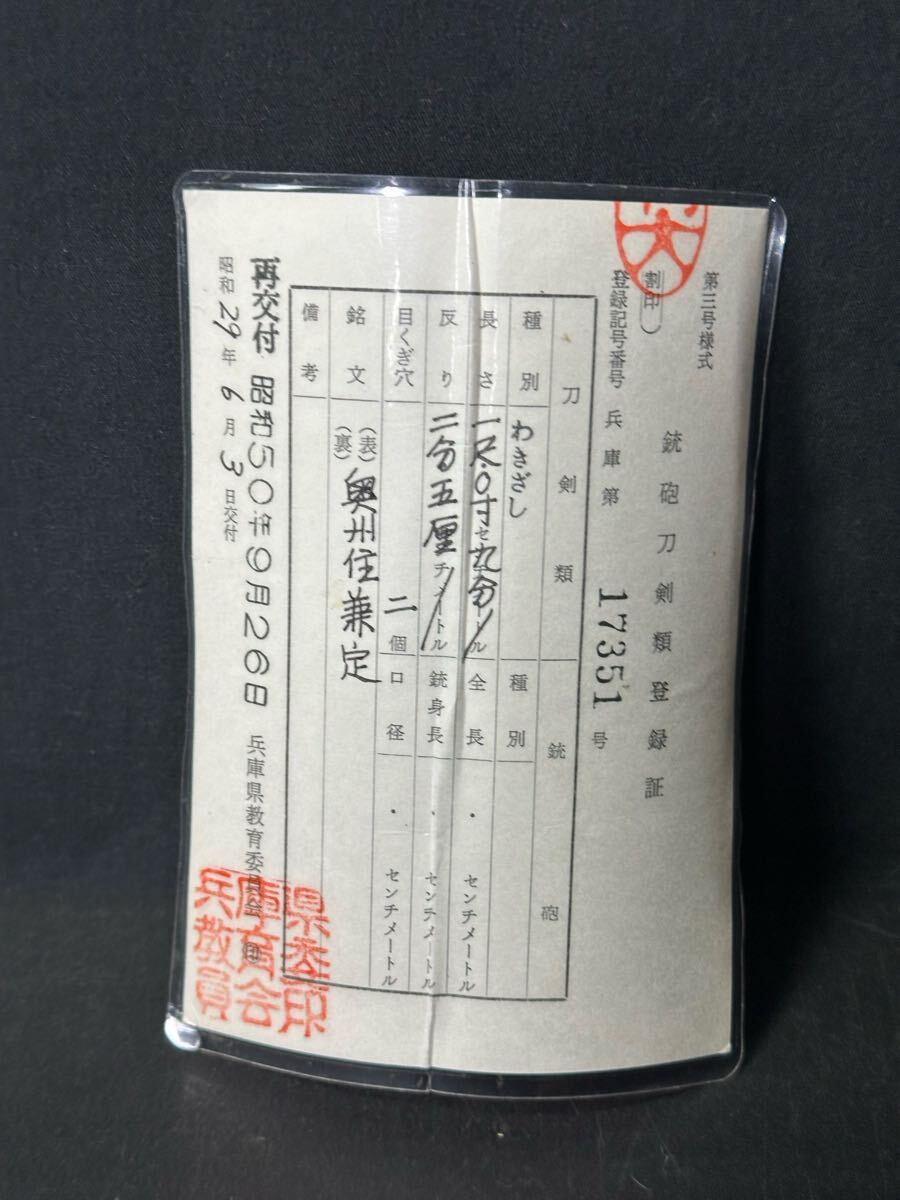 第三号様式
銃砲刀剣類登録証
(割印)
登録記号番号 兵庫第 17351 号
刀剣類 銃砲
種別 わきざし 種別
長さ 一尺.0寸九分 センチメートル 全長 ・ センチメートル
反り 二分五厘 センチメートル 銃身長 ・ センチメートル
目くぎ穴 二 個 口径 ・ センチメートル
銘文 (表) 奥州住兼定
(裏)
備考
再交付 昭和50年9月26日 兵庫県教育委員会 ㊞
昭和29年6月3日交付
兵庫県教育委員会印